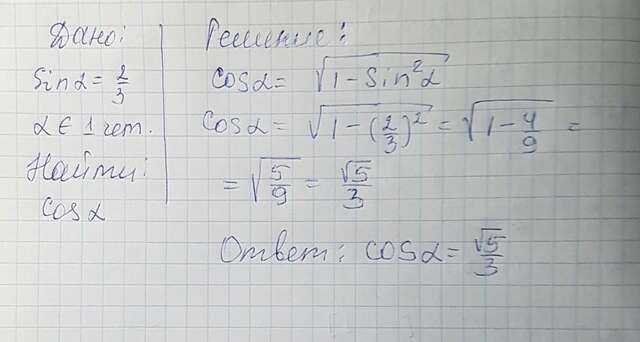 Дано:
sinα = 2/3
α ∈ 1 чет.
Найти:
cosα
Решение:
cosα = √(1 - sin²α)
cosα = √(1 - (2/3)²) = √(1 - 4/9) =
= √(5/9) = √5/3
Ответ: cosα = √5/3